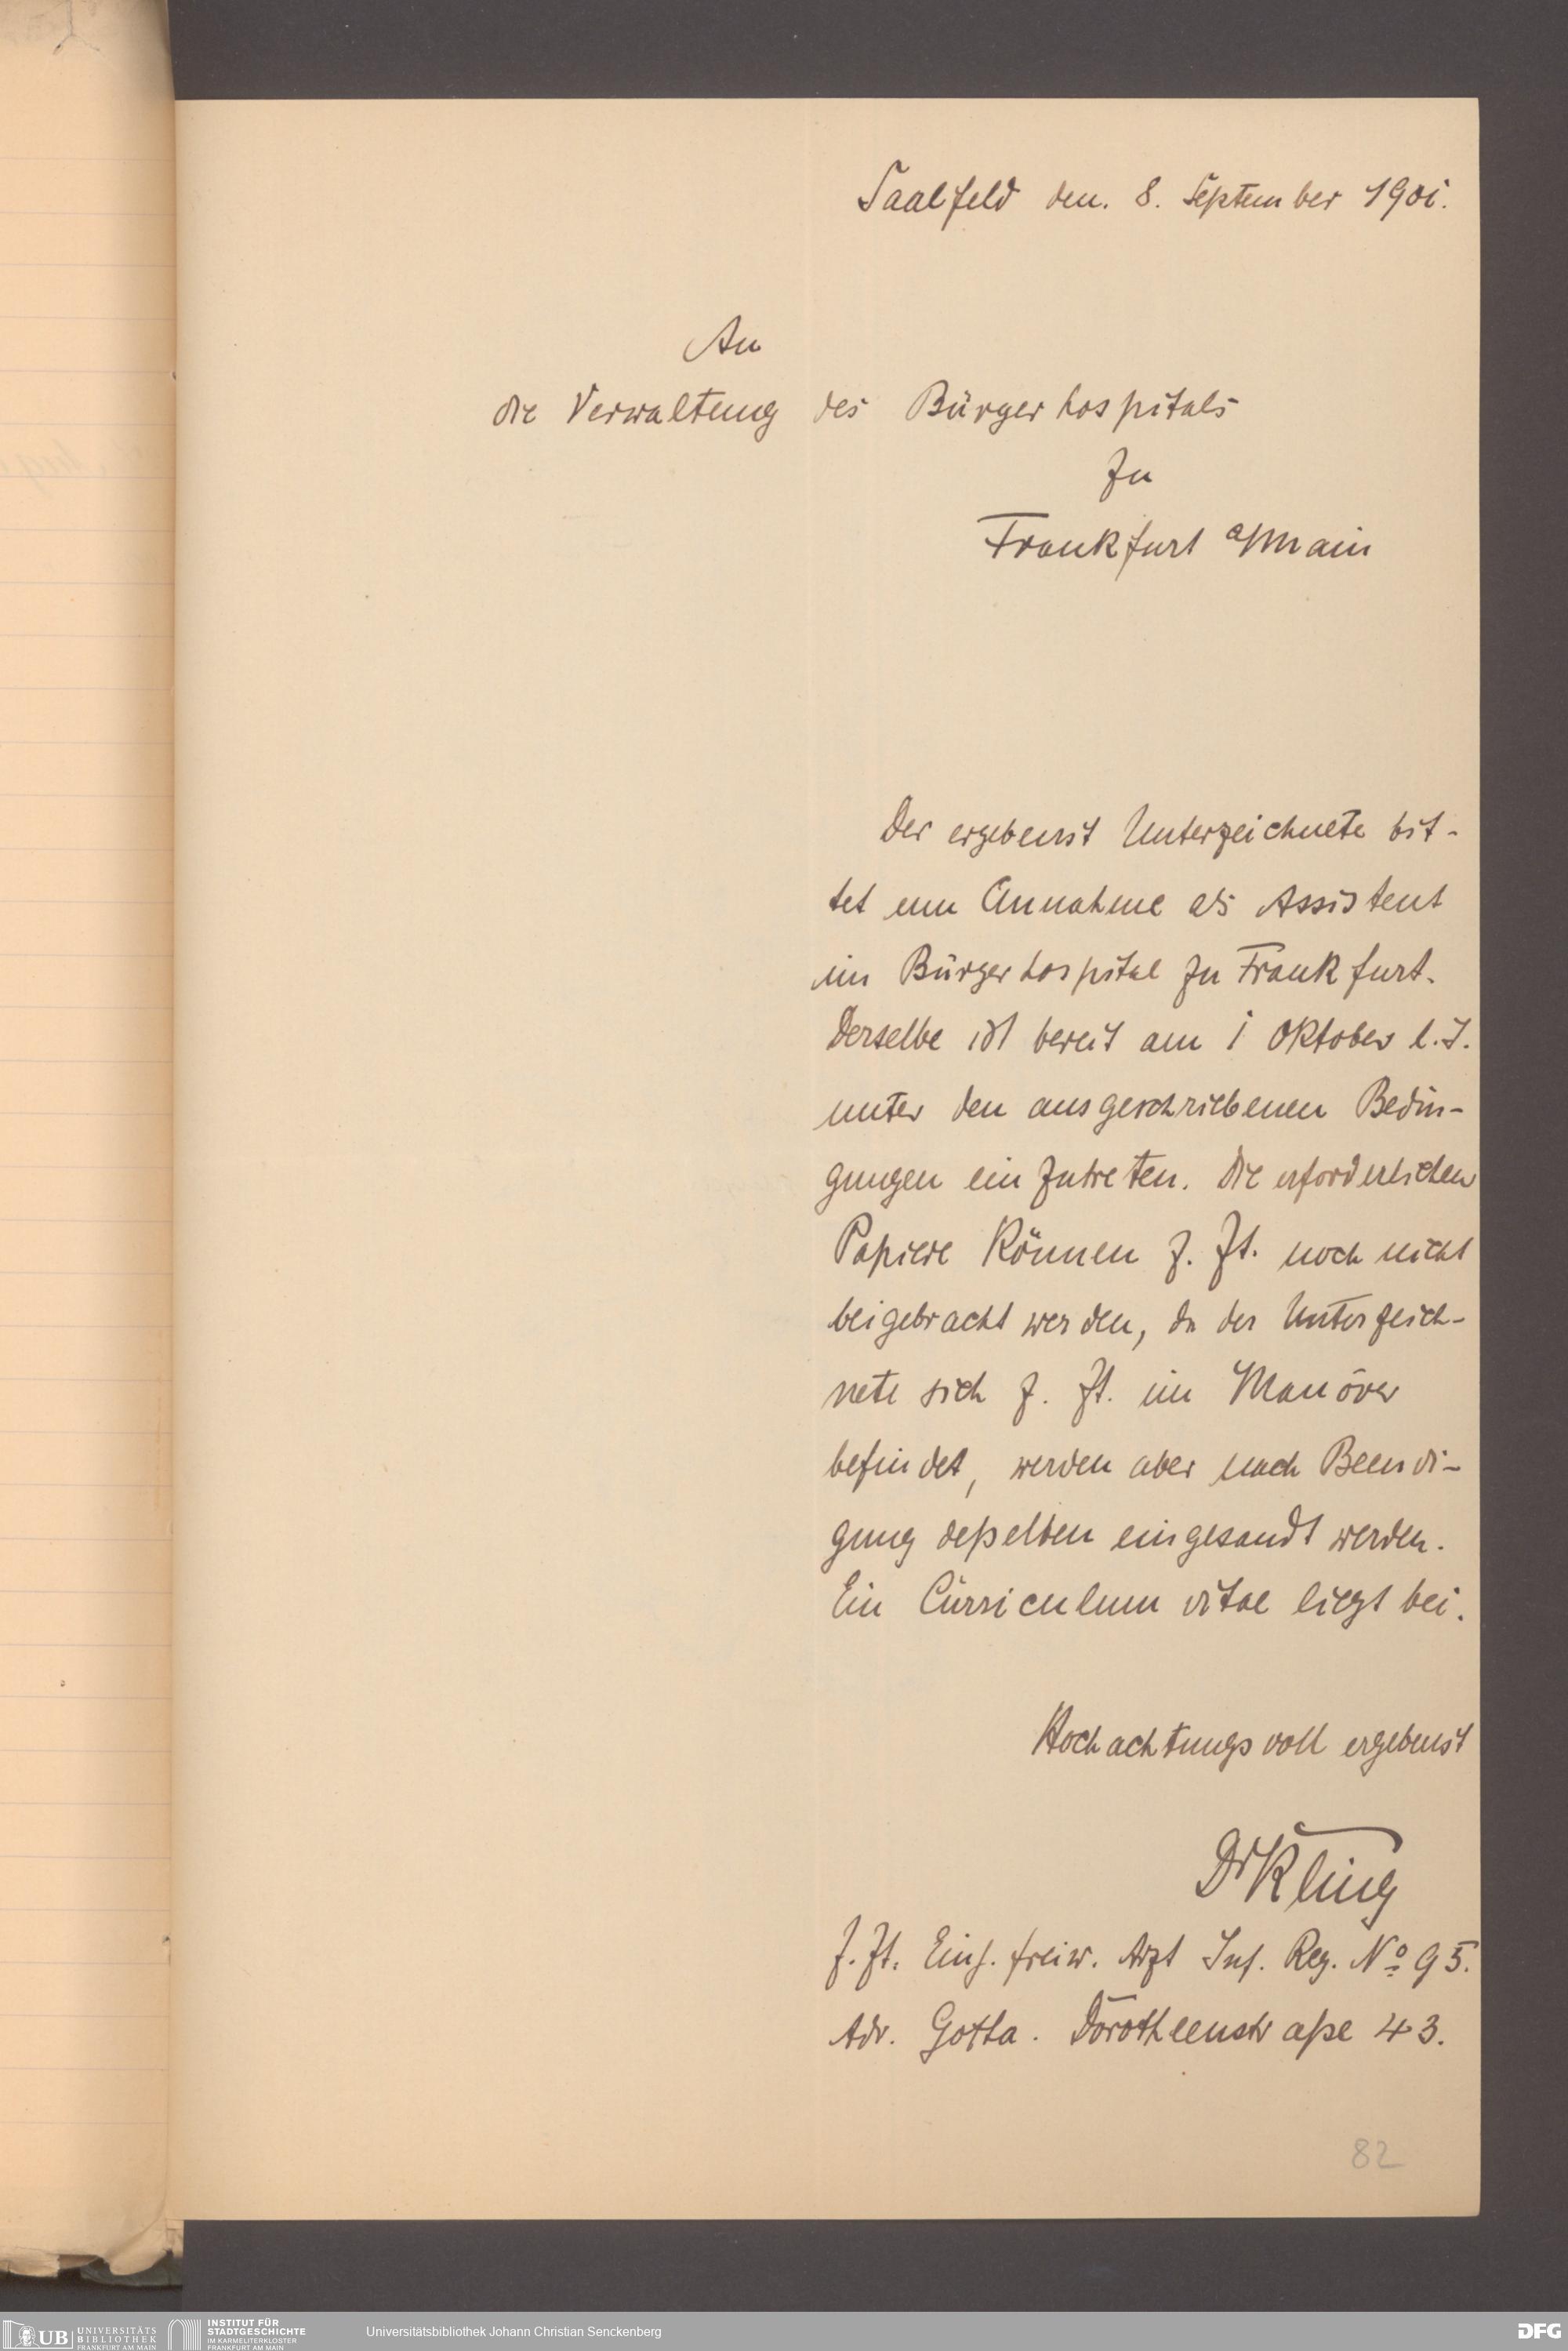 Saalfeld den. 8. September 1901.
An
die Verwaltung des Bürgerhospitals
zu
Frankfurt a/Main
Der ergebenst Unterzeichnete bit-
tet um Annahme als Assistent
im Bürgerhospital zu Frankfurt.
Derselbe ist bereit am 1 Oktober l. J.
unter den ausgeschriebenen Bedin-
gungen einzutreten. Die erforderlichen
Papiere können z. Zt. noch nicht
beigebracht werden, da der Unterzeich-
nete sich z. Zt. im Manöver
befindet, werden aber nach Beendi-
gung deßelben eingesandt werden.
Ein Curriculum vitae liegt bei.
Hochachtungsvoll ergebenst
Dr Kling
z. Zt. Einj. freiw. Arzt Inf. Reg. No 95.
Adr. Gotha. Dorotheenstraße 43.
82
UB UNIVERSITÄTS
BIBLIOTHEK
FRANKFURT AM MAIN
INSTITUT FÜR
STADTGESCHICHTE
IM KARMELITERKLOSTER
FRANKFURT AM MAIN
Universitätsbibliothek Johann Christian Senckenberg
DFG